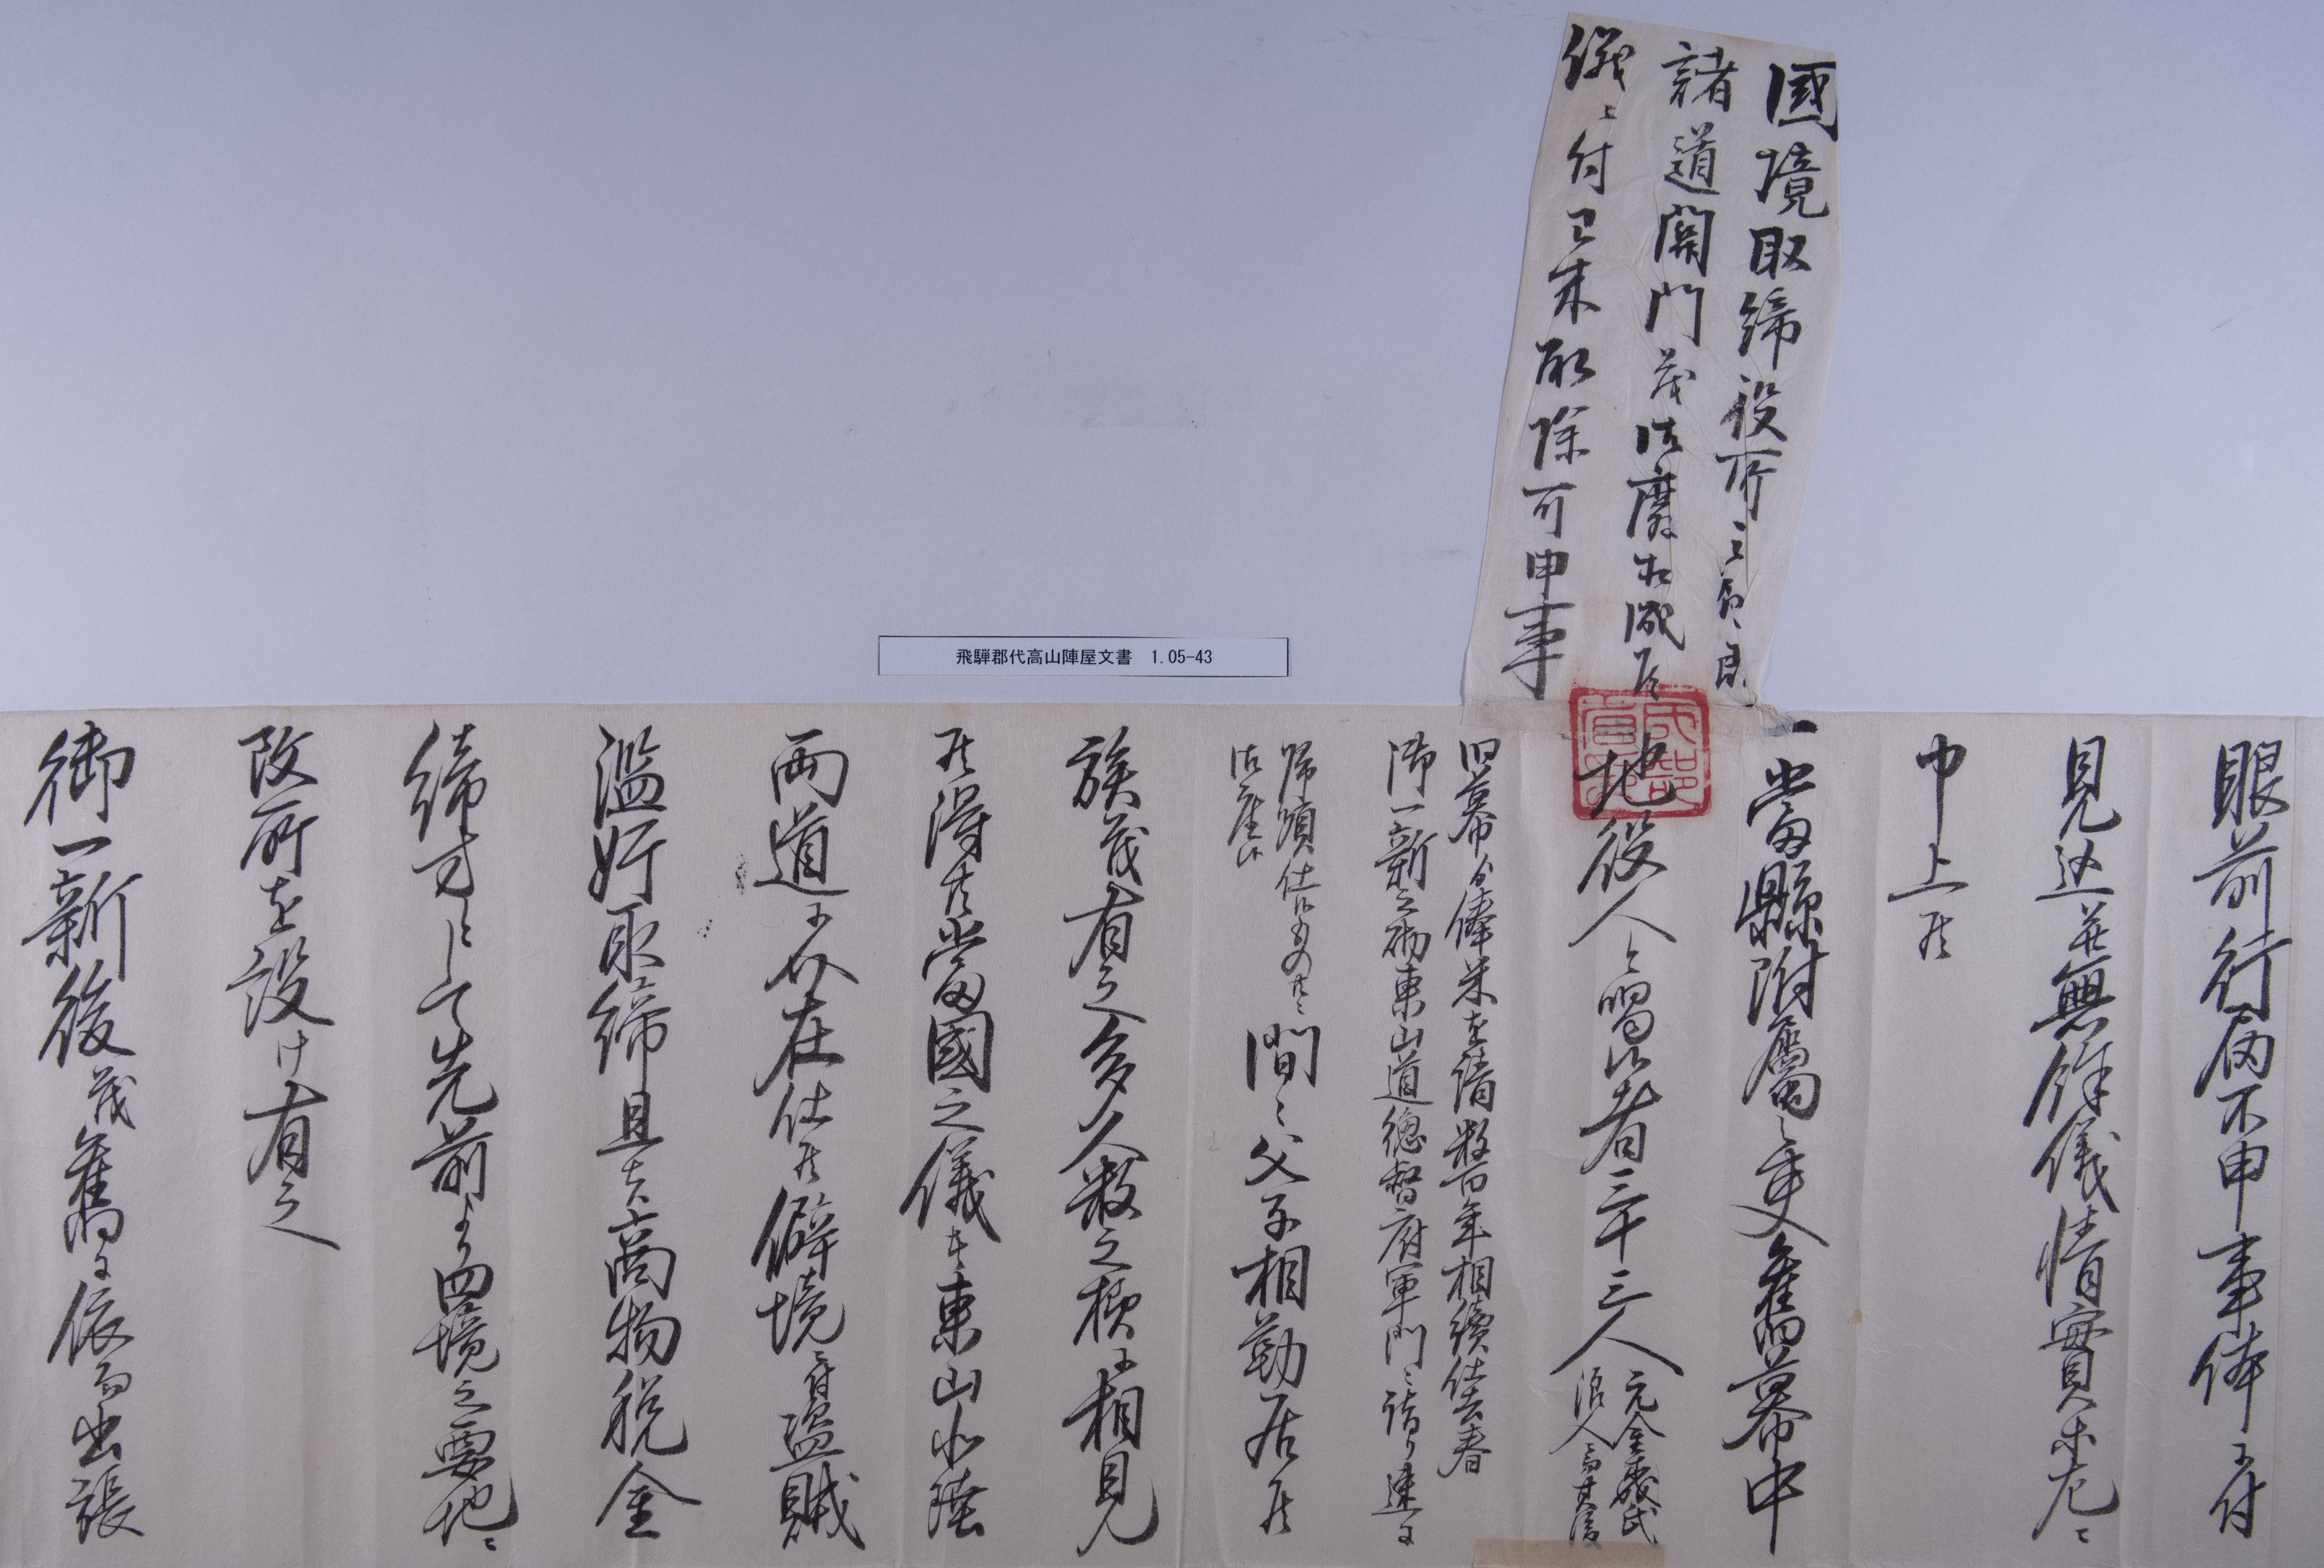 國境取締役所
諸道開門茂御廃相成候
儀ニ付已来取除可申事
飛騨郡代高山陣屋文書 1.05-43
眼前行届不申事体ニ付
見込并無餘儀情實等左ニ
申上候
一當縣附属之吏舊幕中
地役人と唱候者三十三人
元金森氏
浪人ニ而其後
旧幕ゟ俸米を請数百年相續仕去春
御一新之砌東山道總督府軍門ニ詣り速ニ
帰順仕候ものニ
御座候
間ニ父子相勤居候
族茂有之多人数之様ニ相見
候得共當國之儀者東山北陸
両道ニ介在仕候僻境ニ付盗賊
濫妨取締且夫々商物税金
締方として先前より四境之要地ニ
改所を設け有之
御一新後茂舊ニ依而出張